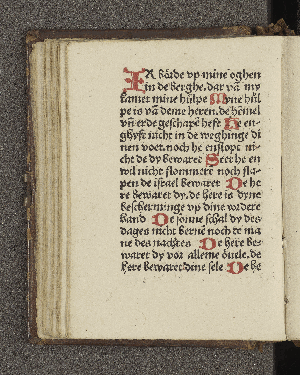 IK börde vp mine oghen
in de berghe. dar vā my
kamet mine hülpe Myne hül
pe is vā deme heren. de hēmel
vñ erde geschapē heft He en
ghyft nicht in de weghinge di
nen voet. noch he enslope ni-
cht de dy bewaret Seet he en
wil nicht slommern noch sla-
pen de israel bewaret De he
re beware dy. de here is dyne
bescherminge vp dine vordere
hand De sonne schal dy des
dages nicht bernē noch te ma
ne des nachtes De here be-
waret dy vor alleme ōuele. de
here beware dine sele De he